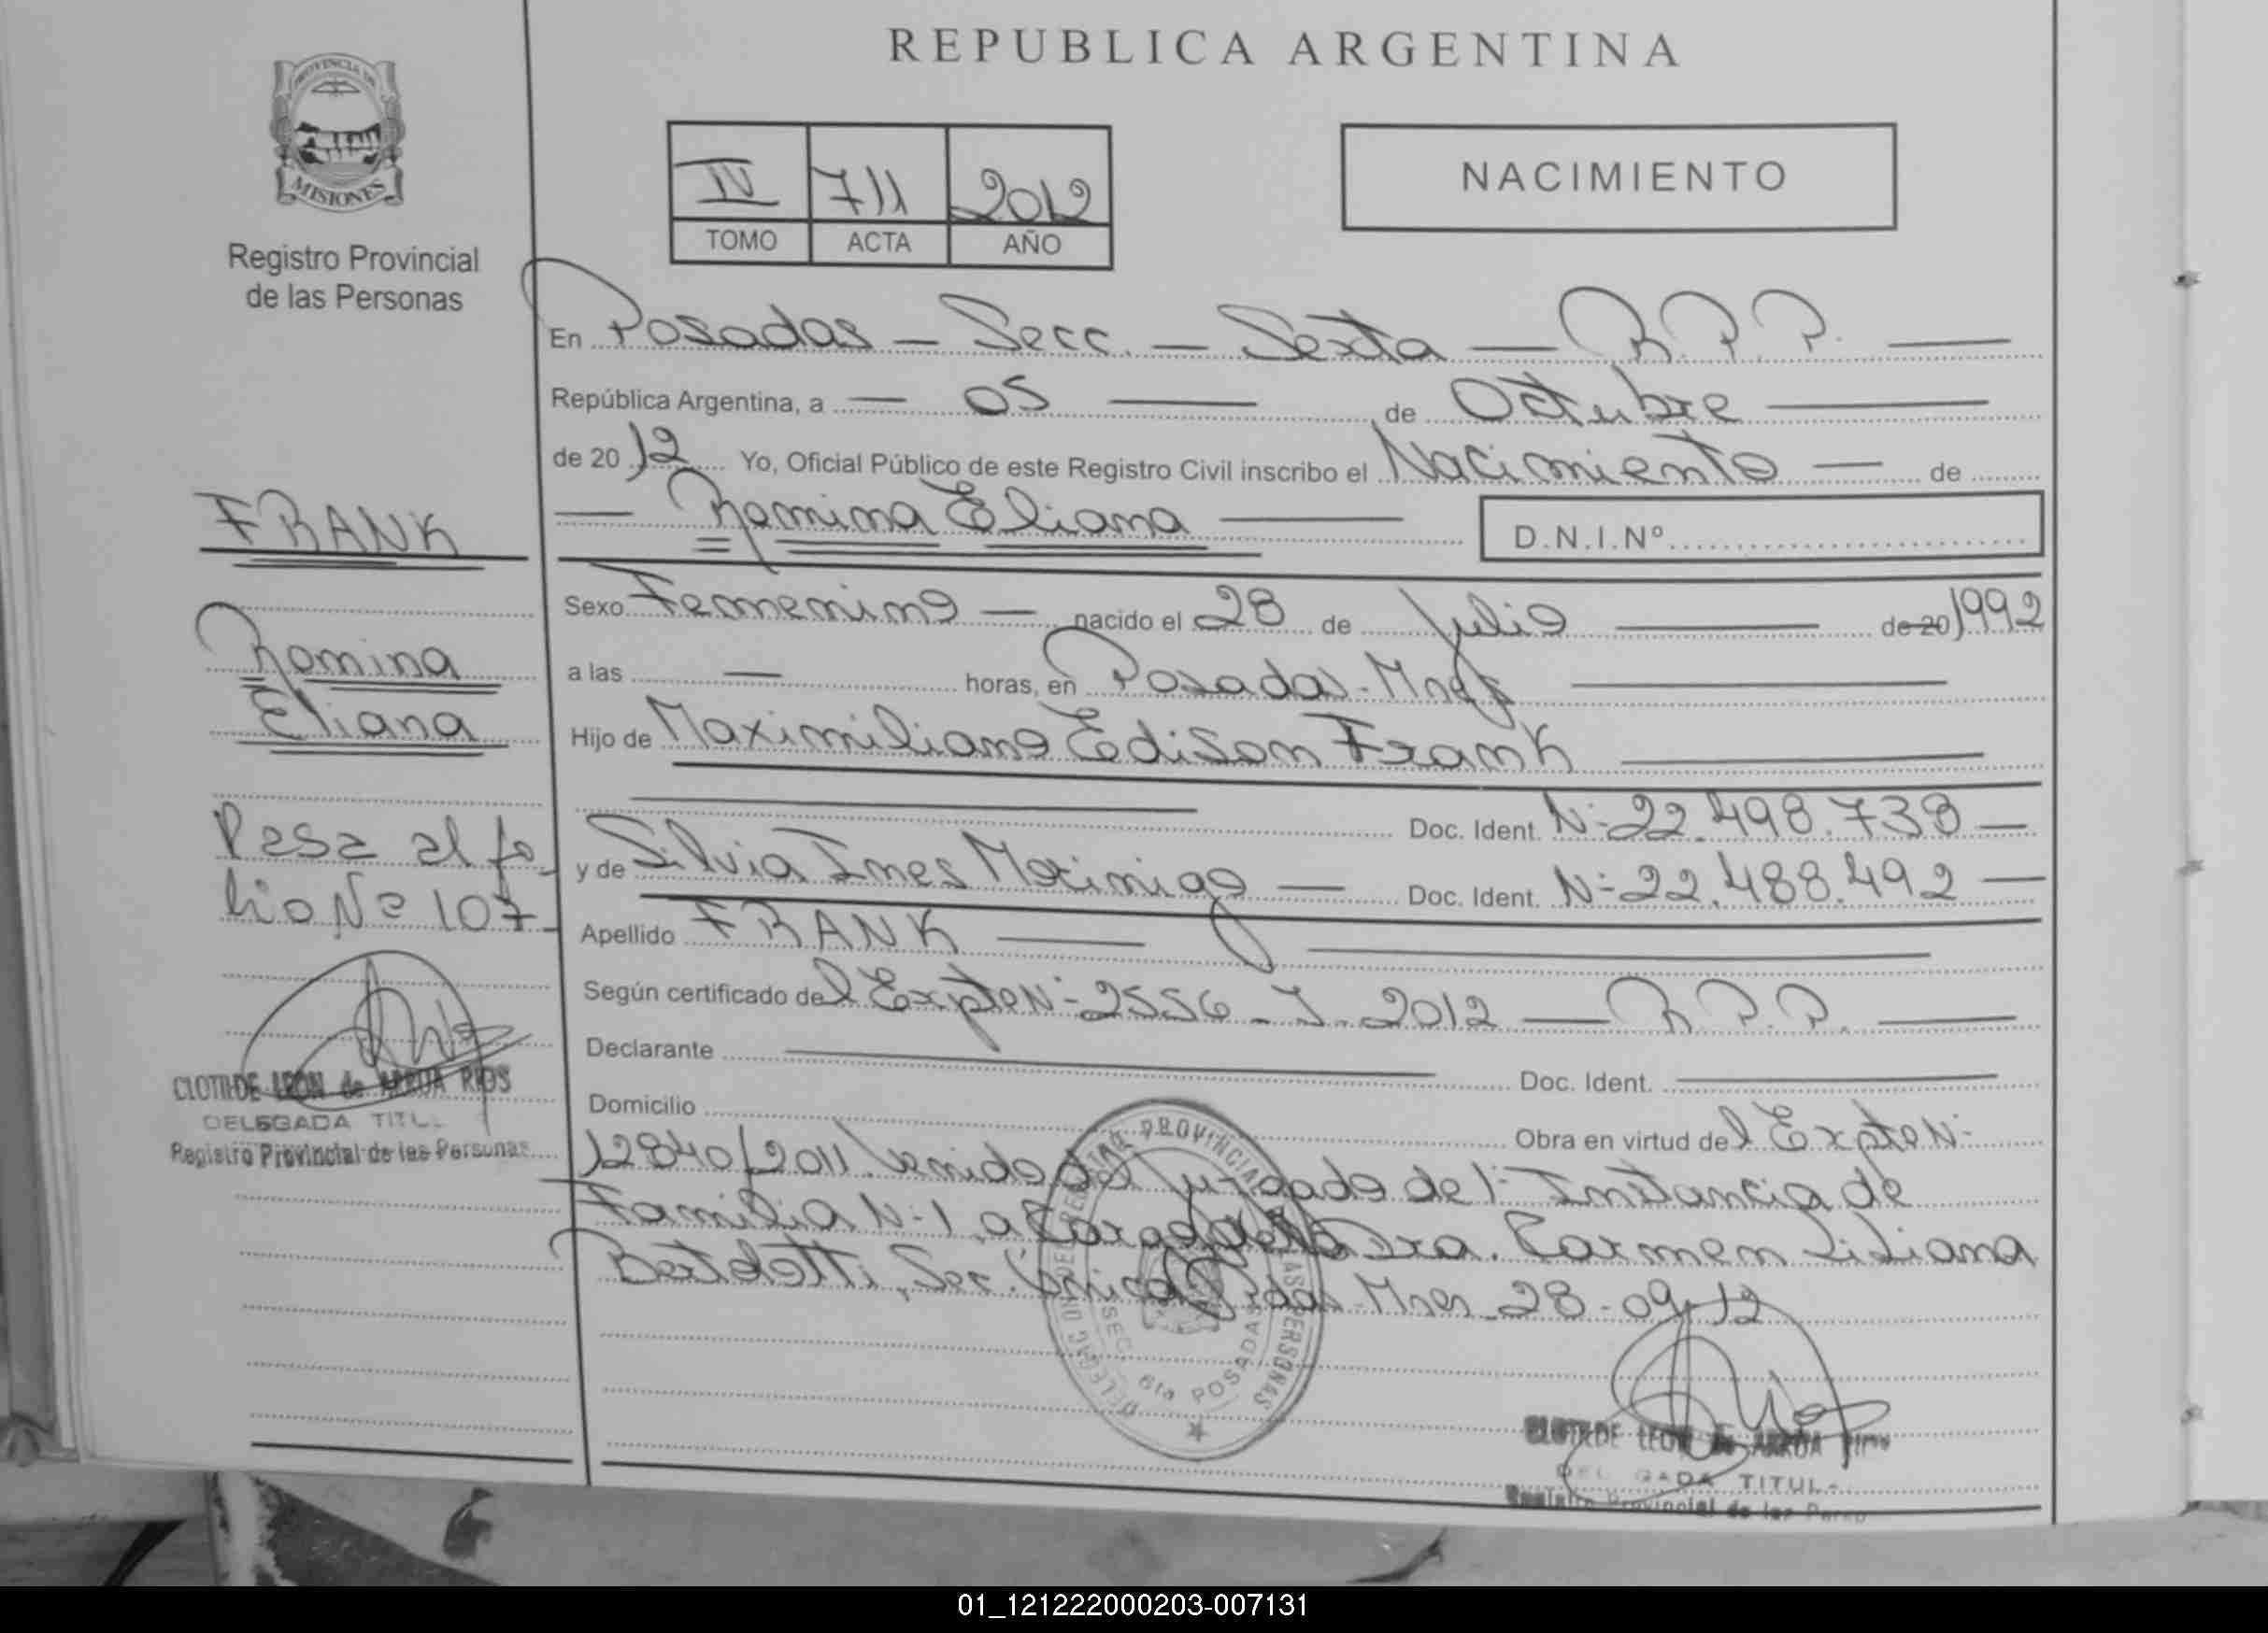 REPUBLICA ARGENTINA
PROVINCIA DE
MISIONES
Registro Provincial
de las Personas
IV 711 2012
TOMO ACTA AÑO
NACIMIENTO
En Posadas — Secc. — Sexta — R.P.P. —
República Argentina, a — 05 — de Octubre —
de 2012 Yo, Oficial Público de este Registro Civil inscribo el Nacimiento — de
— Romina Eliana — D.N.I.Nº
FRANK
Romina
Eliana
Pasa al fo-
lio Nº 107-
CLOTILDE LEON de ARRUA RIOS
DELEGADA TITUL
Registro Provincial de las Personas
Sexo Femenino — nacido el 28 de Julio — de 20 1992
a las — horas, en Posadas - Mnes —
Hijo de Maximiliano Edison Frank —
Doc. Ident. Nº 22.498.738 —
y de Silvia Ines Morinigo — Doc. Ident. Nº 22.488.492 —
Apellido FRANK —
Según certificado del Expte Nº 2556 - J - 2012 — R.P.P. —
Declarante — Doc. Ident. —
Domicilio Obra en virtud del Expte Nº
12840/2011 venido del Juzgado de 1º Instancia de
Familia Nº 1, a Cargo de la Dra. Carmen Liliana
Bertolotti, Sec. Unica Pdas - Mnes 28-09-12
DELEGACION DEL REGISTRO PROVINCIAL DE LAS PERSONAS
SEC. 6ta POSADAS
CLOTILDE LEON de ARRUA RIOS
DELEGADA TITUL
Registro Provincial de las Perso
01_121222000203-007131